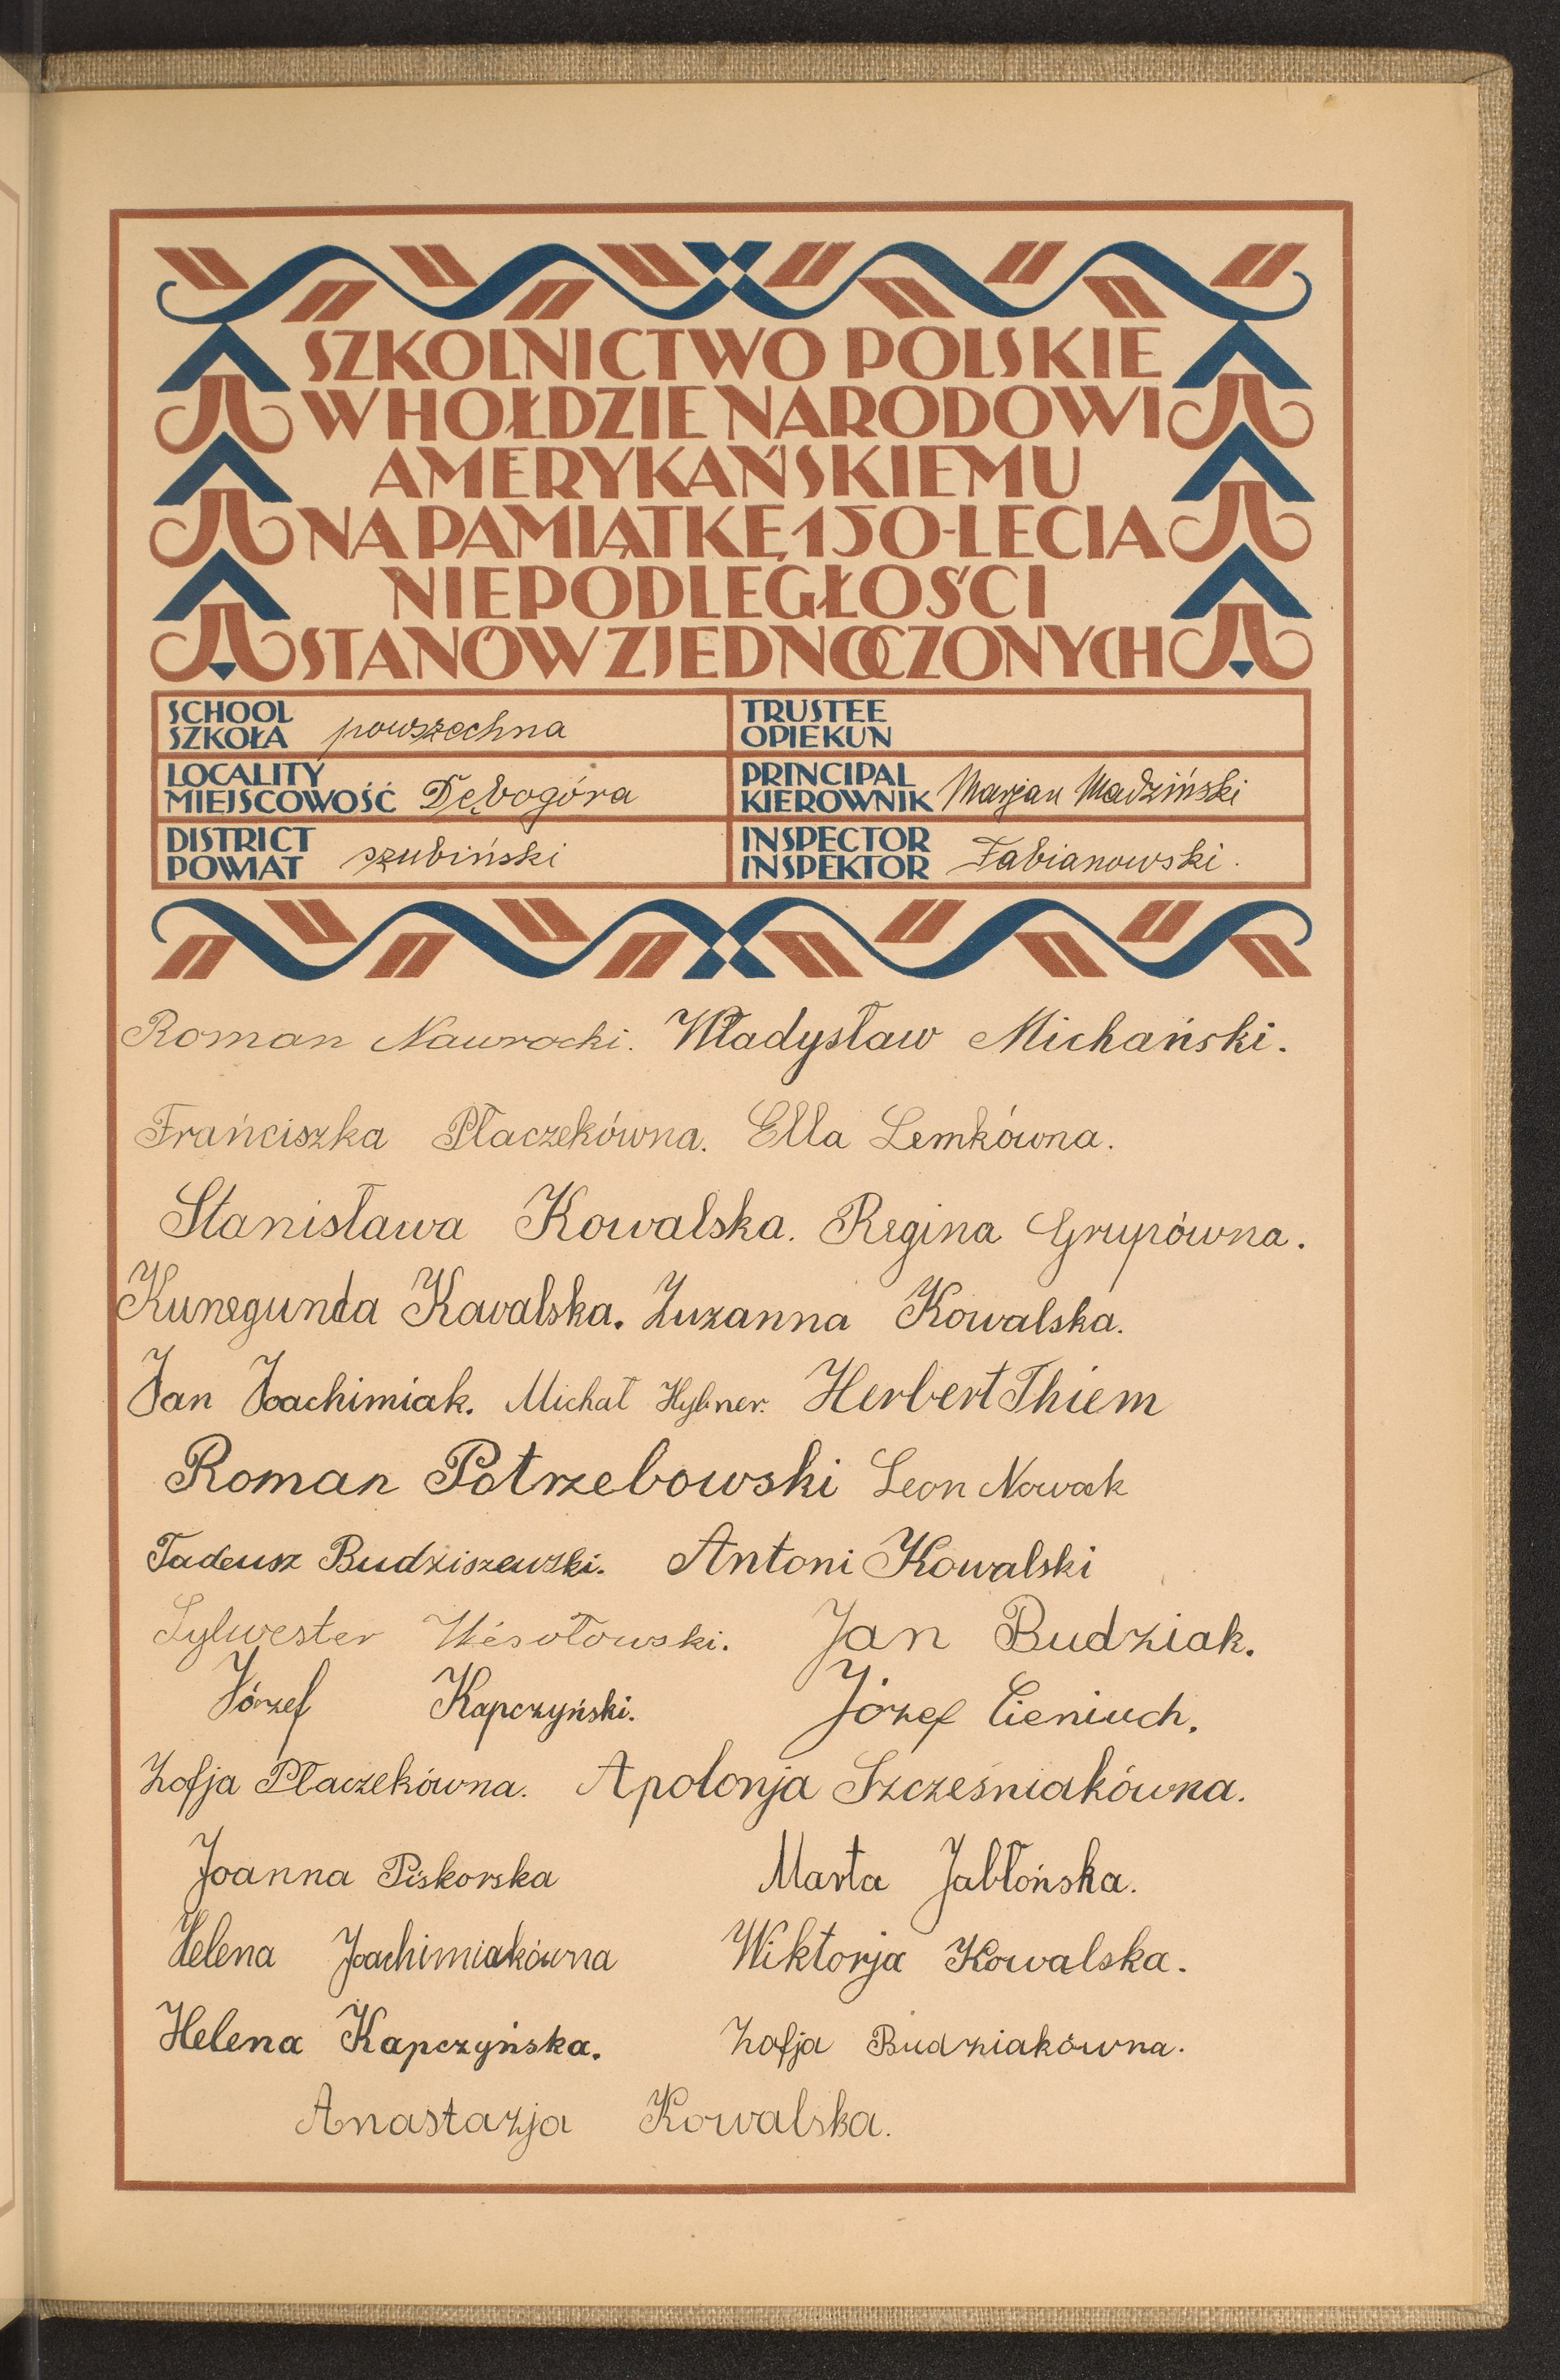 SZKOLNICTWO POLSKIE
W HOŁDZIE NARODOWI
AMERYKAŃSKIEMU
NA PAMIĄTKĘ 150-LECIA
NIEPODLEGŁOŚCI
STANÓW ZJEDNOCZONYCH
SCHOOL
SZKOŁA powszechna
TRUSTEE
OPIEKUN
LOCALITY
MIEJSCOWOŚĆ Dębogóra
PRINCIPAL
KIEROWNIK Marjan Madziński
DISTRICT
POWIAT szubiński
INSPECTOR
INSPEKTOR Fabianowski.
Roman Nawrocki. Władysław Michański.
Frańciszka Płaczekówna. Ella Lemkówna.
Stanisława Kowalska. Regina Grupówna.
Kunegunda Kowalska. Zuzanna Kowalska.
Jan Joachimiak. Michał Hybner. Herbert Thiem
Roman Potrzebowski Leon Nowak
Tadeusz Budziszewski. Antoni Kowalski
Sylwester Wesołowski. Jan Budziak.
Józef Kapczyński. Józef Cieniuch.
Zofja Płaczekówna. Apolonja Szcześniakówna.
Joanna Piskorska Marta Jabłońska.
Helena Joachimiakówna Wiktorja Kowalska.
Helena Kapczyńska. Zofja Budziakówna.
Anastazja Kowalska.